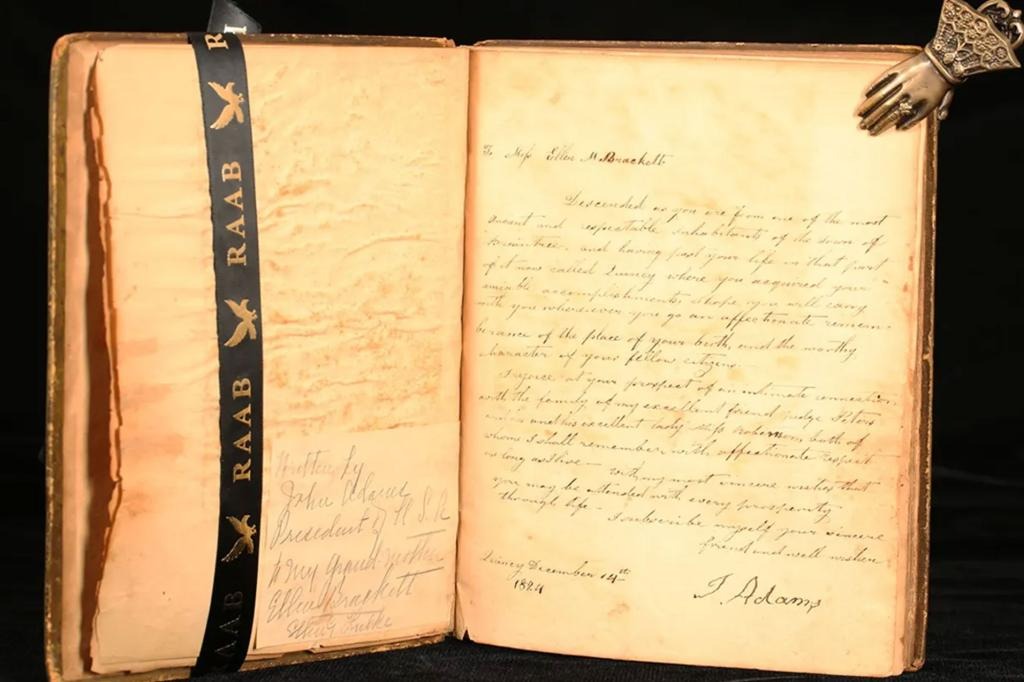 RAAB
RAAB
RAAB
Written by
John Adams
President of U S. A
to my Grand mother
Ellen Brackett
To Miss Ellen M Brackett
Descended as you are from one of the most
ancient and respectable inhabitants of the town of
Braintree, and having past your life in that part
of it now called Quincy where you acquired your
amiable accomplishments, I hope you will carry
with you wheresoever you go an affectionate remem-
berance of the place of your birth, and the worthy
character of your fellow citizens.
I rejoice at your prospect of an intimate connection
with the family of my excellent friend Judge Peters
and his excellent lady Miss Robinson, both of
whom I shall remember with affectionate respect
as long as I live – with my most sincere wishes that
you may be attended with every prosperity
through life – I subscribe myself your sincere
friend and well wisher
Quincy December 14th
1824
J. Adams